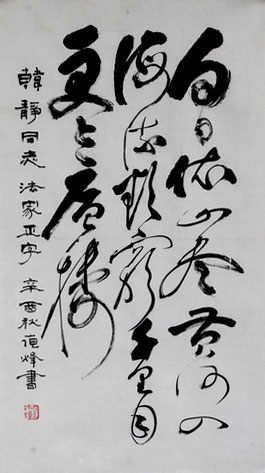 白日依山盡黄河入
海流欲窮千里目
更上一層樓
韓靜同志法家正字辛酉秋烽書